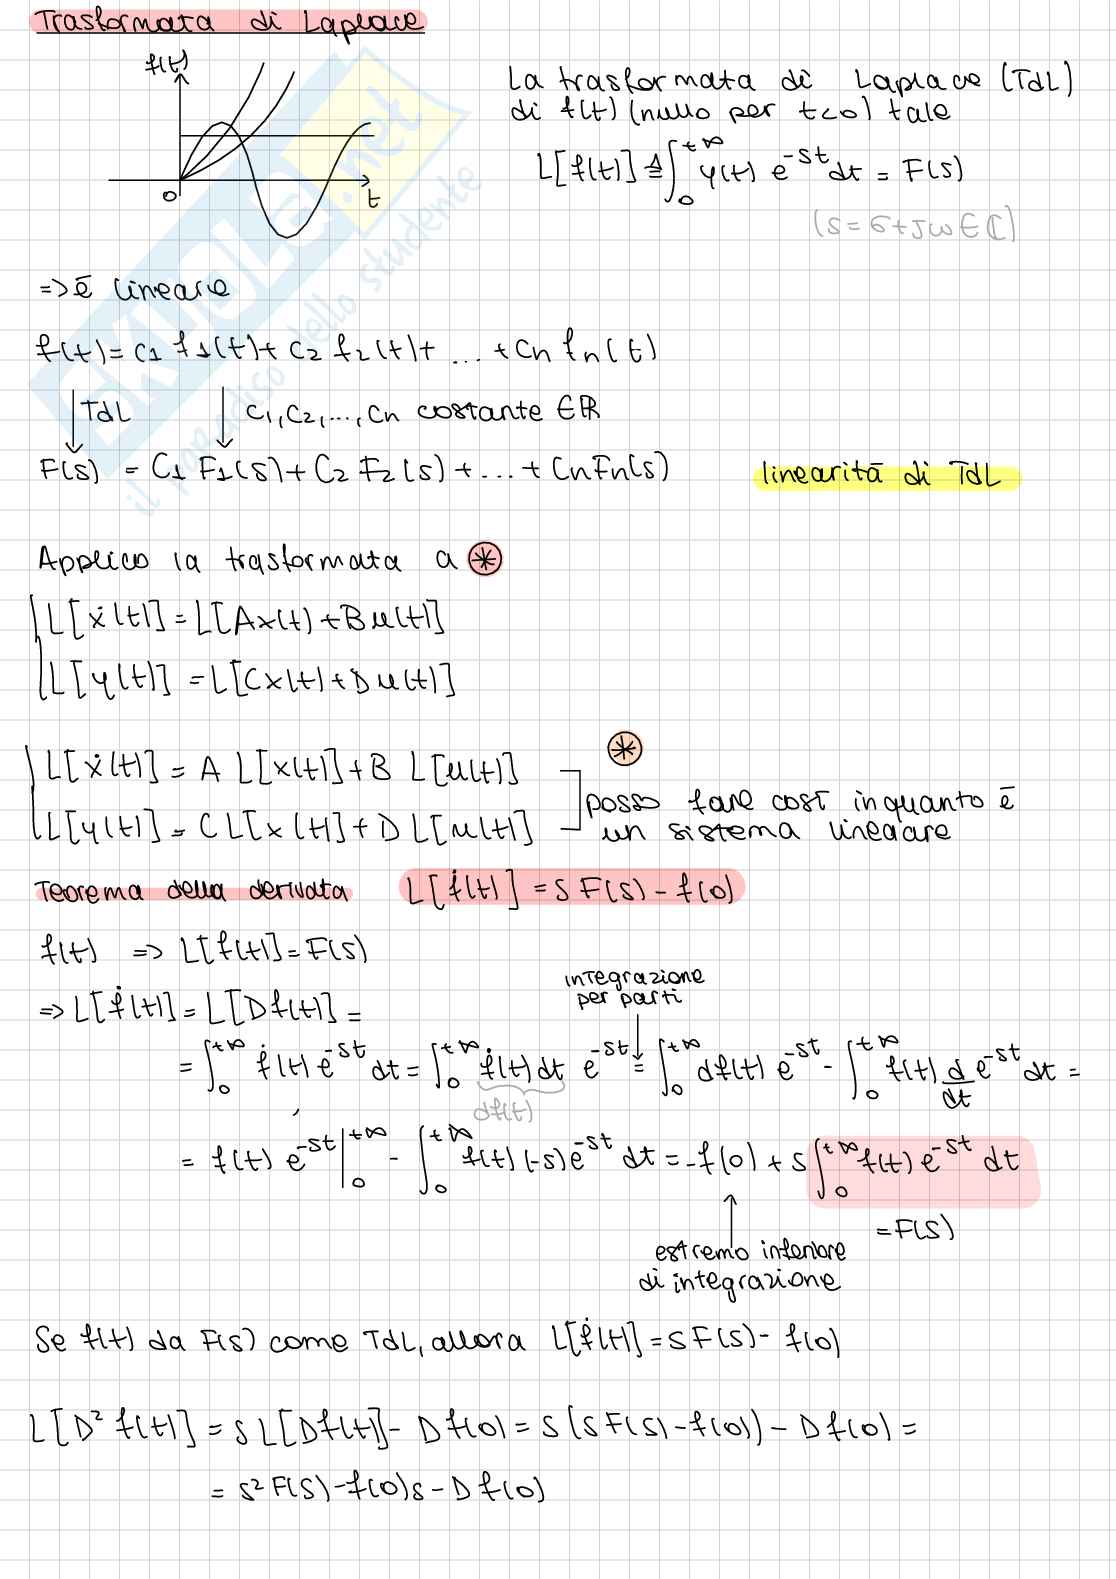 Trasformata di Laplace
f(t)
0
t
La trasformata di Laplace (TdL)
di f(t) (nullo per t<0) tale
L[f(t)] ≜ ∫₀^{+∞} y(t) e^{-st} dt = F(s)
(s = σ + jω ∈ ℂ)
=> è lineare
f(t) = c1 f1(t) + c2 f2(t) + ... + cn fn(t)
TdL
c1, c2, ..., cn costante ∈ ℝ
F(s) = C1 F1(s) + C2 F2(s) + ... + Cn Fn(s)
linearità di TdL
Applico la trasformata a ⊛
L[ẋ(t)] = L[Ax(t) + Bu(t)]
L[y(t)] = L[Cx(t) + Du(t)]
⊛
L[ẋ(t)] = A L[x(t)] + B L[u(t)]
L[y(t)] = C L[x(t)] + D L[u(t)]
posso fare così in quanto è
un sistema lineare
Teorema della derivata L[ḟ(t)] = s F(s) - f(0)
f(t) => L[f(t)] = F(s)
integrazione
per parti
=> L[ḟ(t)] = L[Df(t)] =
= ∫₀^{+∞} ḟ(t) e^{-st} dt = ∫₀^{+∞} ḟ(t) dt e^{-st} = ∫₀^{+∞} df(t) e^{-st} - ∫₀^{+∞} f(t) d/dt e^{-st} dt =
df(t)
= f(t) e^{-st} |₀^{+∞} - ∫₀^{+∞} f(t) (-s) e^{-st} dt = -f(0) + s ∫₀^{+∞} f(t) e^{-st} dt
= F(s)
estremo inferiore
di integrazione
Se f(t) da F(s) come TdL, allora L[ḟ(t)] = s F(s) - f(0)
L[D² f(t)] = s L[Df(t)] - D f(0) = s (s F(s) - f(0)) - D f(0) =
= s² F(s) - f(0)s - D f(0)
SKUOLA.net
il paradiso dello studente